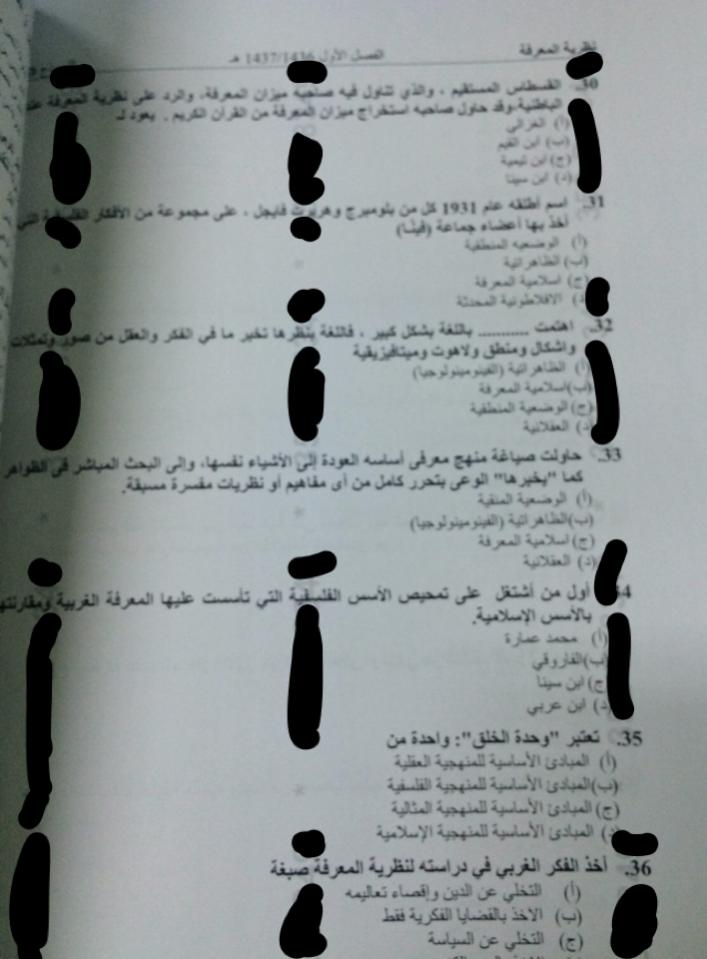 نظرية المعرفة الفصل الأول 1437/1436 هـ
30. القسطاس المستقيم ، والذي تناول فيه صاحبه ميزان المعرفة، والرد على نظرية المعرفة عند
الباطنية-وقد حاول صاحبه استخراج ميزان المعرفة من القرآن الكريم . يعود لـ
(أ) الغزالي
(ب) ابن القيم
(ج) ابن تيمية
(د) ابن سينا
31. اسم أطلقه عام 1931 كل من بلومبرج وهربرت فايجل ، على مجموعة من الأفكار الفلسفية التي
أخذ بها أعضاء جماعة (فينا)
(أ) الوضعيه المنطقية
(ب) الظاهراتية
(ج) اسلامية المعرفة
(د) الافلاطونية المحدثة
32. اهتمت .......... باللغة بشكل كبير ، فاللغة بنظرها تخبر ما في الفكر والعقل من صور وتمثلات
واشكال ومنطق ولاهوت وميتافيزيقية
(أ) الظاهراتية (الفينومينولوجيا)
(ب)اسلامية المعرفة
(ج) الوضعية المنطقية
(د) العقلانية
33. حاولت صياغة منهج معرفى أساسه العودة إلى الأشياء نفسها، وإلى البحث المباشر فى الظواهر
كما "يخبرها" الوعى بتحرر كامل من أى مفاهيم أو نظريات مفسرة مسبقة.
(أ) الوضعية المنقية
(ب)الظاهراتية (الفينومينولوجيا)
(ج) اسلامية المعرفة
(د) العقلانية
34 أول من أشتغل على تمحيص الأسس الفلسفية التي تأسست عليها المعرفة الغربية ومقارنتها
بالأسس الإسلامية.
(أ) محمد عمارة
(ب)الفاروقي
(ج) ابن سينا
(د) ابن عربي
35. تعتبر "وحدة الخلق": واحدة من
(أ) المبادئ الأساسية للمنهجية العقلية
(ب)المبادئ الأساسية للمنهجية الفلسفية
(ج) المبادئ الأساسية للمنهجية المثالية
(د) المبادئ الأساسية للمنهجية الإسلامية
36. أخذ الفكر الغربي في دراسته لنظرية المعرفة صبغة
(أ) التخلي عن الدين وإقصاء تعاليمه
(ب) الاخذ بالقضايا الفكرية فقط
(ج) التخلي عن السياسة